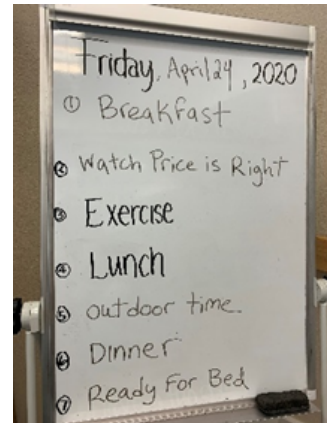 Friday, April 24, 2020
① Breakfast
② Watch Price is Right
③ Exercise
④ Lunch
⑤ outdoor time.
⑥ Dinner
⑦ Ready For Bed